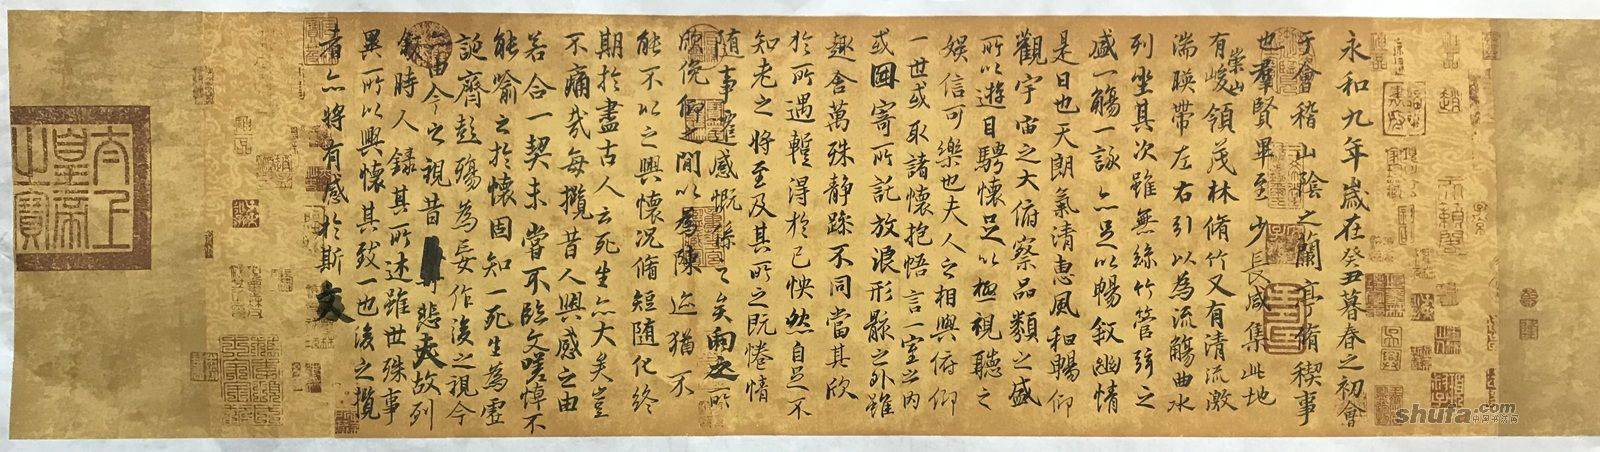 永和九年歲在癸丑暮春之初會
于會稽山陰之蘭亭脩禊事
也羣賢畢至少長咸集此地
有崇山峻領茂林脩竹又有清流激
湍暎帶左右引以為流觴曲水
列坐其次雖無絲竹管弦之
盛一觴一詠亦足以暢敘幽情
是日也天朗氣清惠風和暢仰
觀宇宙之大俯察品類之盛
所以遊目騁懷足以極視聽之
娛信可樂也夫人之相與俯仰
一世或取諸懷抱悟言一室之內
或因寄所託放浪形骸之外雖
趣舍萬殊靜躁不同當其欣
於所遇蹔得於己怏然自足不
知老之將至及其所之既惓情
隨事遷感慨係之矣向之所
欣俛仰之閒以為陳迹猶不
能不以之興懷況脩短隨化終
期於盡古人云死生亦大矣豈
不痛哉每攬昔人興感之由
若合一契未嘗不臨文嗟悼不
能喻之於懷固知一死生為虛
誕齊彭殤為妄作後之視今
亦由今之視昔悲夫故列
敘時人錄其所述雖世殊事
異所以興懷其致一也後之攬
者亦將有感於斯文
太上皇帝之寶
shufa.com